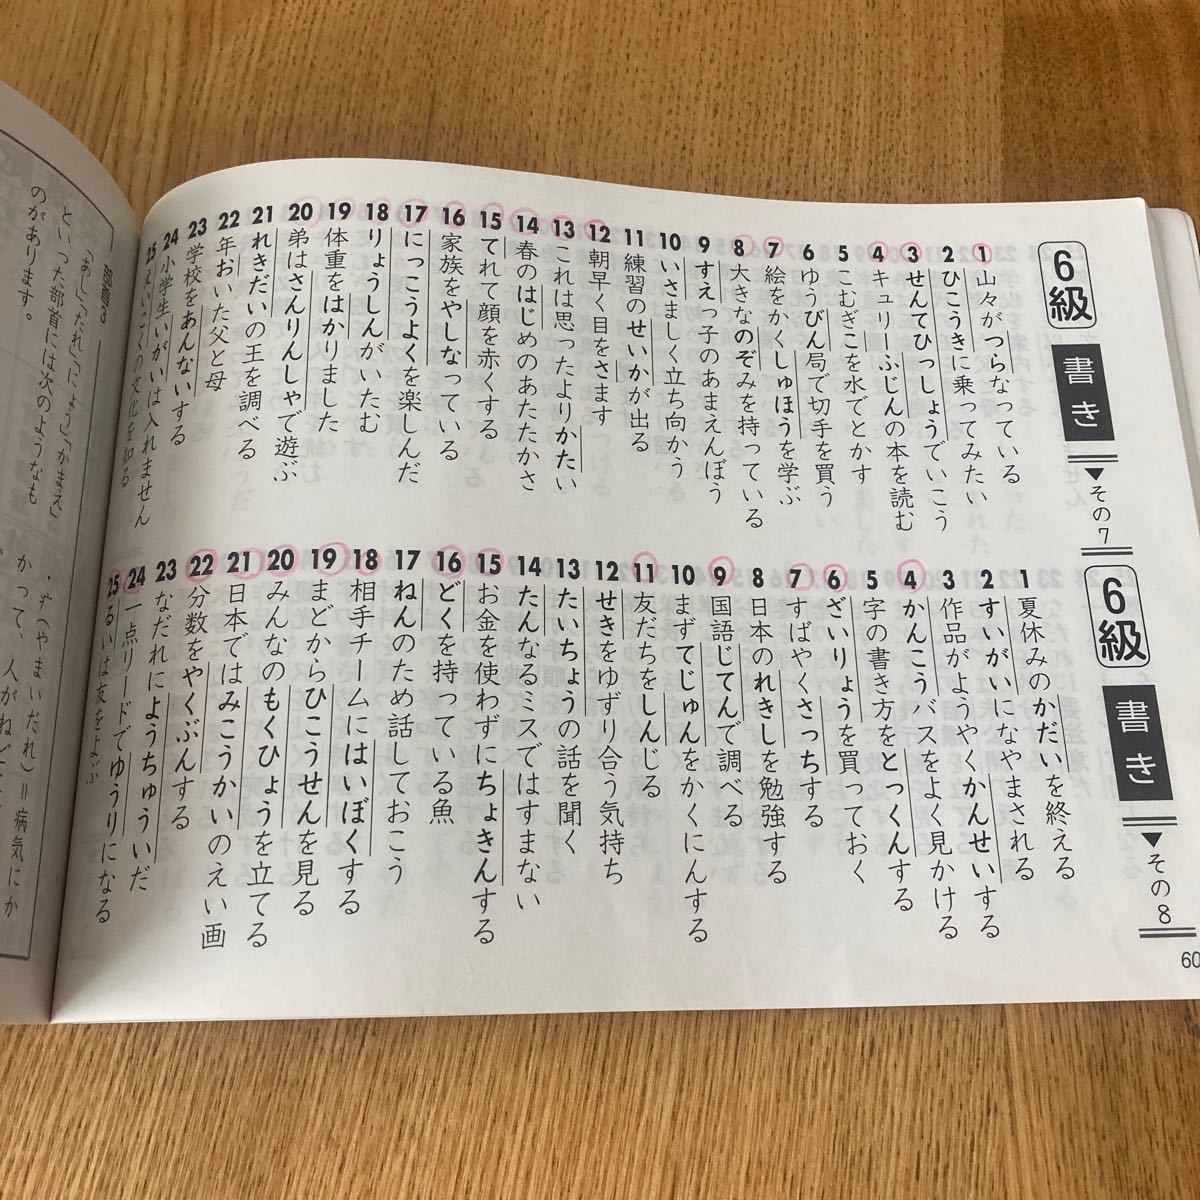 6級 書き ▼その7
1 山々がつらなっている
2 ひこうきに乗ってみたい
3 せんてひっしょうでいこう
4 キュリーふじんの本を読む
5 こむぎこを水でとかす
6 ゆうびん局で切手を買う
7 絵をかくしゅほうを学ぶ
8 大きなのぞみを持っている
9 すえっ子のあまえんぼう
10 いさましく立ち向かう
11 練習のせいかが出る
12 朝早く目をさます
13 これは思ったよりかたい
14 春のはじめのあたたかさ
15 てれて顔を赤くする
16 家族をやしなっている
17 にっこうよくを楽しんだ
18 りょうしんがいたむ
19 体重をはかりました
20 弟はさんりんしゃで遊ぶ
21 れきだいの王を調べる
22 年おいた父と母
23 学校をあんないする
24 小学生いがいは入れません
25 えいこくの文化を知る
6級 書き ▼その8
1 夏休みのかだいを終える
2 すいがいになやまされる
3 作品がようやくかんせいする
4 かんこうバスをよく見かける
5 字の書き方をとっくんする
6 ざいりょうを買っておく
7 すばやくさっちする
8 日本のれきしを勉強する
9 国語じてんで調べる
10 まずてじゅんをかくにんする
11 友だちをしんじる
12 せきをゆずり合う気持ち
13 たいちょうの話を聞く
14 たんなるミスではすまない
15 お金を使わずにちょきんする
16 どくを持っている魚
17 ねんのため話しておこう
18 相手チームにはいぼくする
19 まどからひこうせんを見る
20 みんなのもくひょうを立てる
21 日本ではみこうかいのえい画
22 分数をやくぶんする
23 なだれにようちゅういだ
24 一点リードでゆうりになる
25 るいは友をよぶ
60
部首
「あし」「たれ」「にょう」「かまえ」
といった部首には次のようなも
のがあります。
・疒（やまいだれ）＝病気にか
かって、人がね